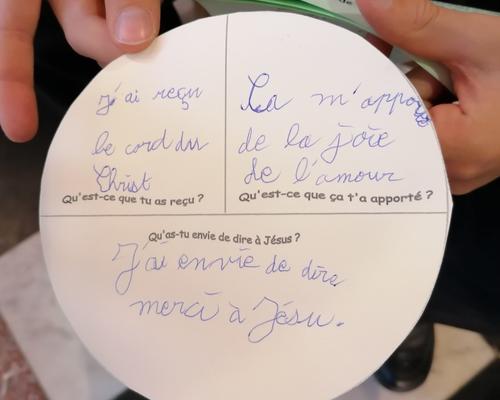 J'ai reçu
le cord du
Christ
Qu'est-ce que tu as reçu ?
La m'apporte
de la joie
de l'amour
Qu'est-ce que ça t'a apporté ?
Qu'as-tu envie de dire à Jésus ?
J'ai envie de dire
merci à Jésu.